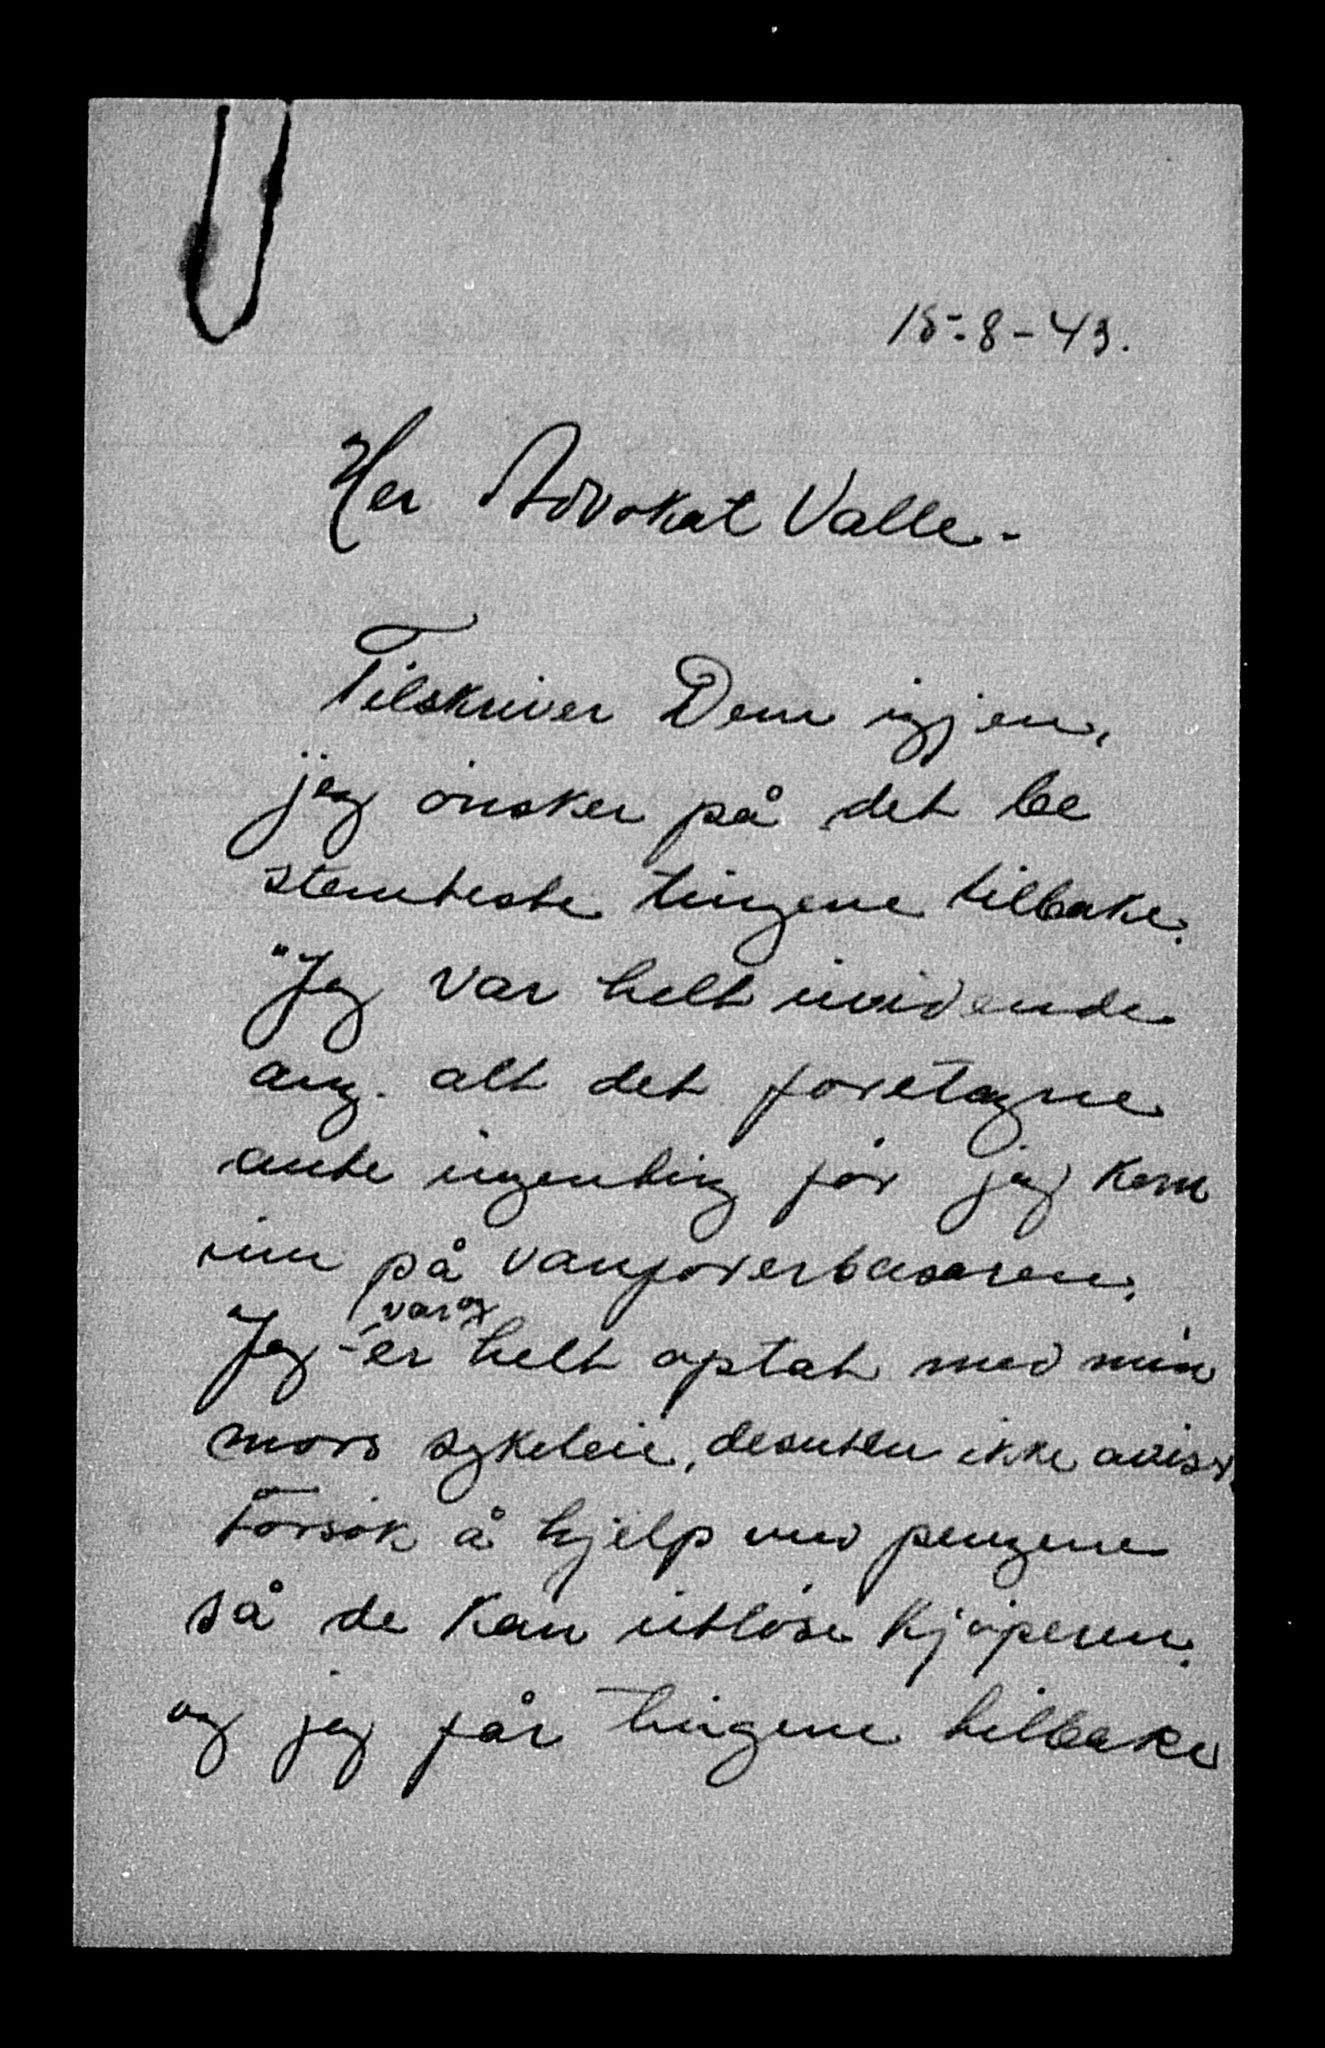 15-8-43.
Her Advokat Valle.-
Tilskriver Dem igjen,
jeg önsker på det be
stemteste tingene tilbake.
"Jeg var helt uvidende
ang. alt det foretagne
ante ingenting för jeg kom
inn på vanförerbasaren.
var og
Jeg er helt optat med min
mors sykeleie, desuten ikke aviser,
Forsök å hjelp med pengene
så de kan utlöse kjöperen.
og jeg får tingene tilbake